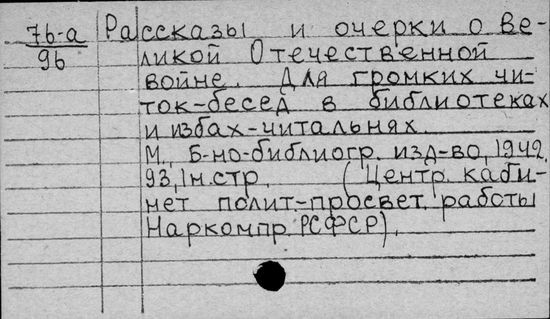 76-а Рассказы и очерки о Ве-
96 ликой Отечественной
войне. Для громких чи-
ток-бесед в библиотеках
и избах-читальнях.
М., Б-но-библиогр. изд-во, 1942.
93, 1н.стр. (Центр. каби-
нет полит-просвет. работы
Наркомпр. РСФСР).